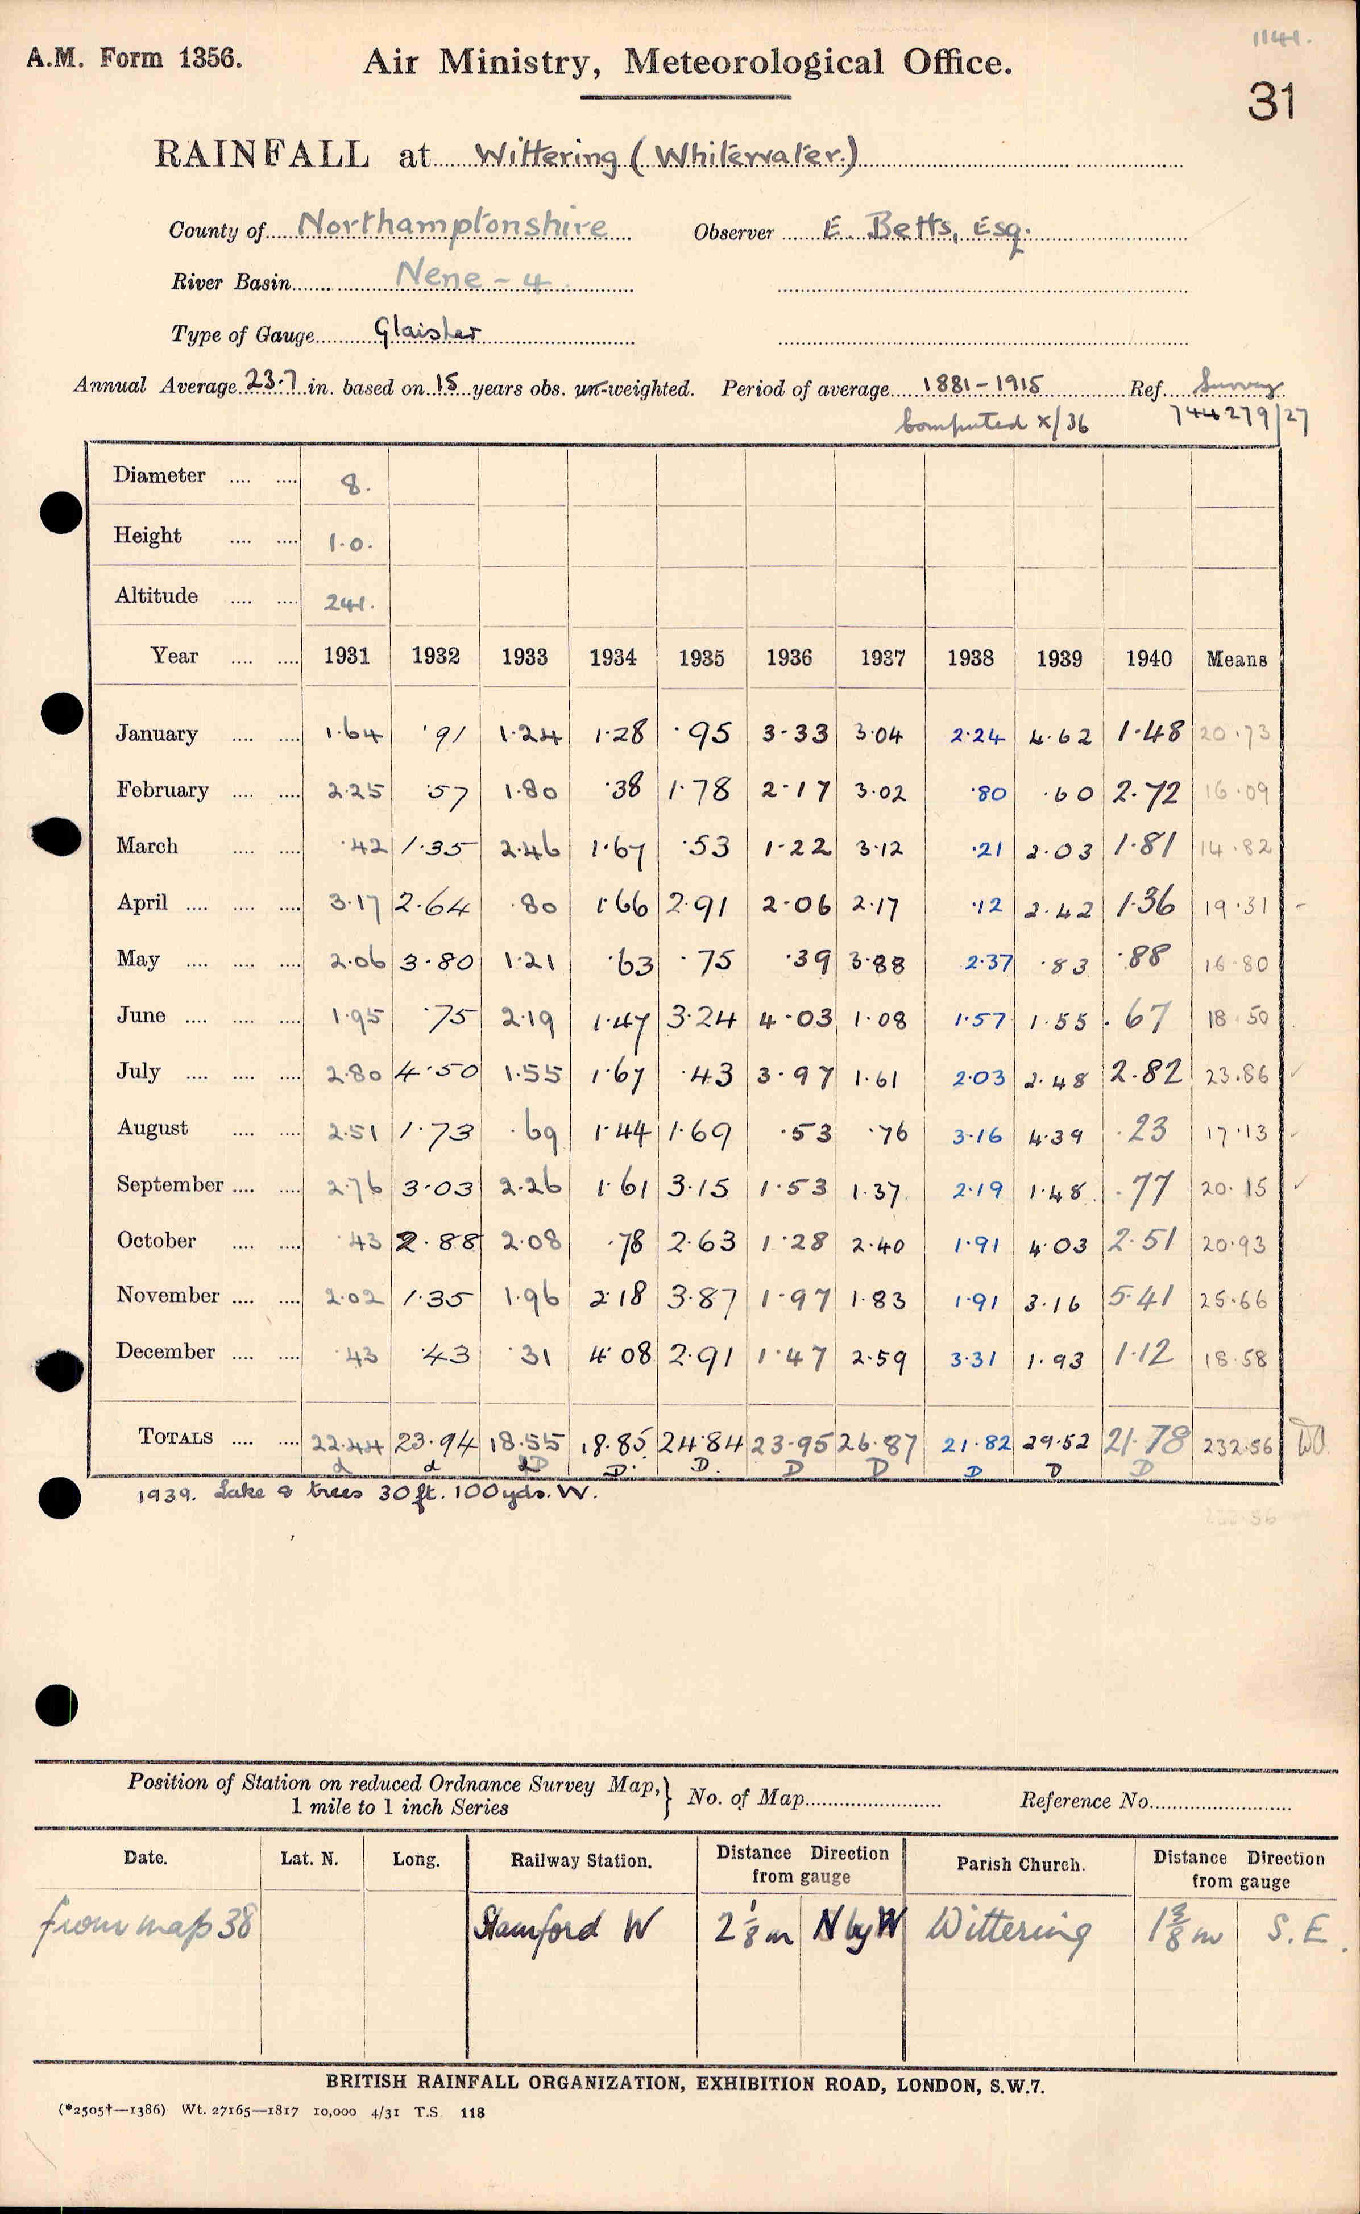 1141.
A.M. Form 1356. Air Ministry, Meteorological Office.
31
RAINFALL at Wittering (Whitewater.)
County of Northamptonshire Observer E. Betts, Esq.
River Basin Nene - 4
Type of Gauge Glaisher
Annual Average 23.7 in. based on 15 years obs. un-weighted. Period of average 1881-1915 Ref. Survey
Computed X/36 744279/27
Diameter .... .... 8.
Height .... .... 1.0.
Altitude .... .... 241.
Year .... .... 1931 1932 1933 1934 1935 1936 1937 1938 1939 1940 Means
January .... .... 1.64 .91 1.24 1.28 .95 3.33 3.04 2.24 4.62 1.48 20.73
February .... .... 2.25 .57 1.80 .38 1.78 2.17 3.02 .80 .60 2.72 16.09
March .... .... .42 1.35 2.46 1.67 .53 1.22 3.12 .21 2.03 1.81 14.82
April .... .... .... 3.17 2.64 .80 1.66 2.91 2.06 2.17 .12 2.42 1.36 19.31 -
May .... .... .... 2.06 3.80 1.21 .63 .75 .39 3.88 2.37 .83 .88 16.80
June .... .... .... 1.95 .75 2.19 1.47 3.24 4.03 1.08 1.57 1.55 .67 18.50
July .... .... .... 2.80 4.50 1.55 1.67 .43 3.97 1.61 2.03 2.48 2.82 23.86 ✓
August .... .... 2.51 1.73 .69 1.44 1.69 .53 .76 3.16 4.39 .23 17.13 ✓
September .... .... 2.76 3.03 2.26 1.61 3.15 1.53 1.37 2.19 1.48 .77 20.15 ✓
October .... .... .43 2.88 2.08 .78 2.63 1.28 2.40 1.91 4.03 2.51 20.93
November .... .... 2.02 1.35 1.96 2.18 3.87 1.97 1.83 1.91 3.16 5.41 25.66
December .... .... .43 .43 .31 4.08 2.91 1.47 2.59 3.31 1.93 1.12 18.58
TOTALS .... .... 22.44 23.94 18.55 18.85 24.84 23.95 26.87 21.82 29.52 21.78 232.56
d d D D. D. D D D D D
1939. Lake & trees 30 ft. 100 yds. W.
Position of Station on reduced Ordnance Survey Map, } No. of Map Reference No.
1 mile to 1 inch Series
Date. Lat. N. Long. Railway Station. Distance Direction from gauge Parish Church. Distance Direction from gauge
from map 38 Stamford W 2 1/8 m N by W Wittering 1 3/8 m S.E.
BRITISH RAINFALL ORGANIZATION, EXHIBITION ROAD, LONDON, S.W.7.
(*2505†—1386) Wt. 27165—1817 10,000 4/31 T.S. 118